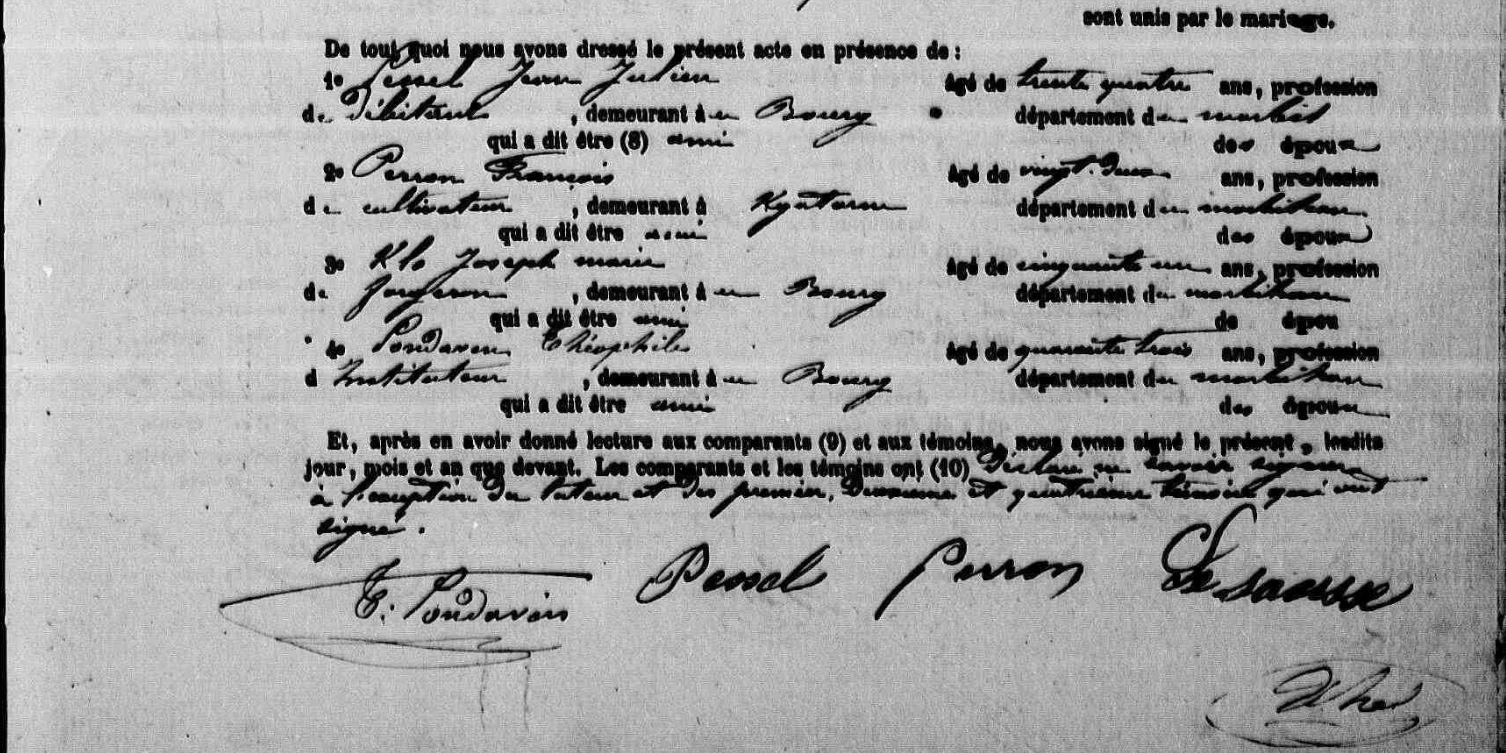 sont unis par le mariage.
De tout quoi nous avons dressé le présent acte en présence de :
1º Pessel Jean Julien âgé de trente quatre ans, profession
de Débitant , demeurant à au Bourg département du morbih
qui a dit être (8) ami des époux
2º Perron François âgé de vingt-deux ans, profession
de cultivateur , demeurant à département du morbihan
qui a dit être ami des époux
3º Klo Joseph marie âgé de cinquante un ans, profession
de forgeron , demeurant à au Bourg département du morbihan
qui a dit être ami de épou
4º Pondaven Théophile âgé de quarante trois ans, profession
d Instituteur , demeurant à au Bourg département du morbihan
qui a dit être ami des époux
Et, après en avoir donné lecture aux comparants (9) et aux témoins, nous avons signé le présent, lesdits
jour, mois et an que devant. Les comparants et les témoins ont (10) déclaré ne savoir signer
à l'exception du tuteur et des premier, deuxième et quatrième témoins qui ont
signé.
T. Pondaven Pessel Perron Le Saousse